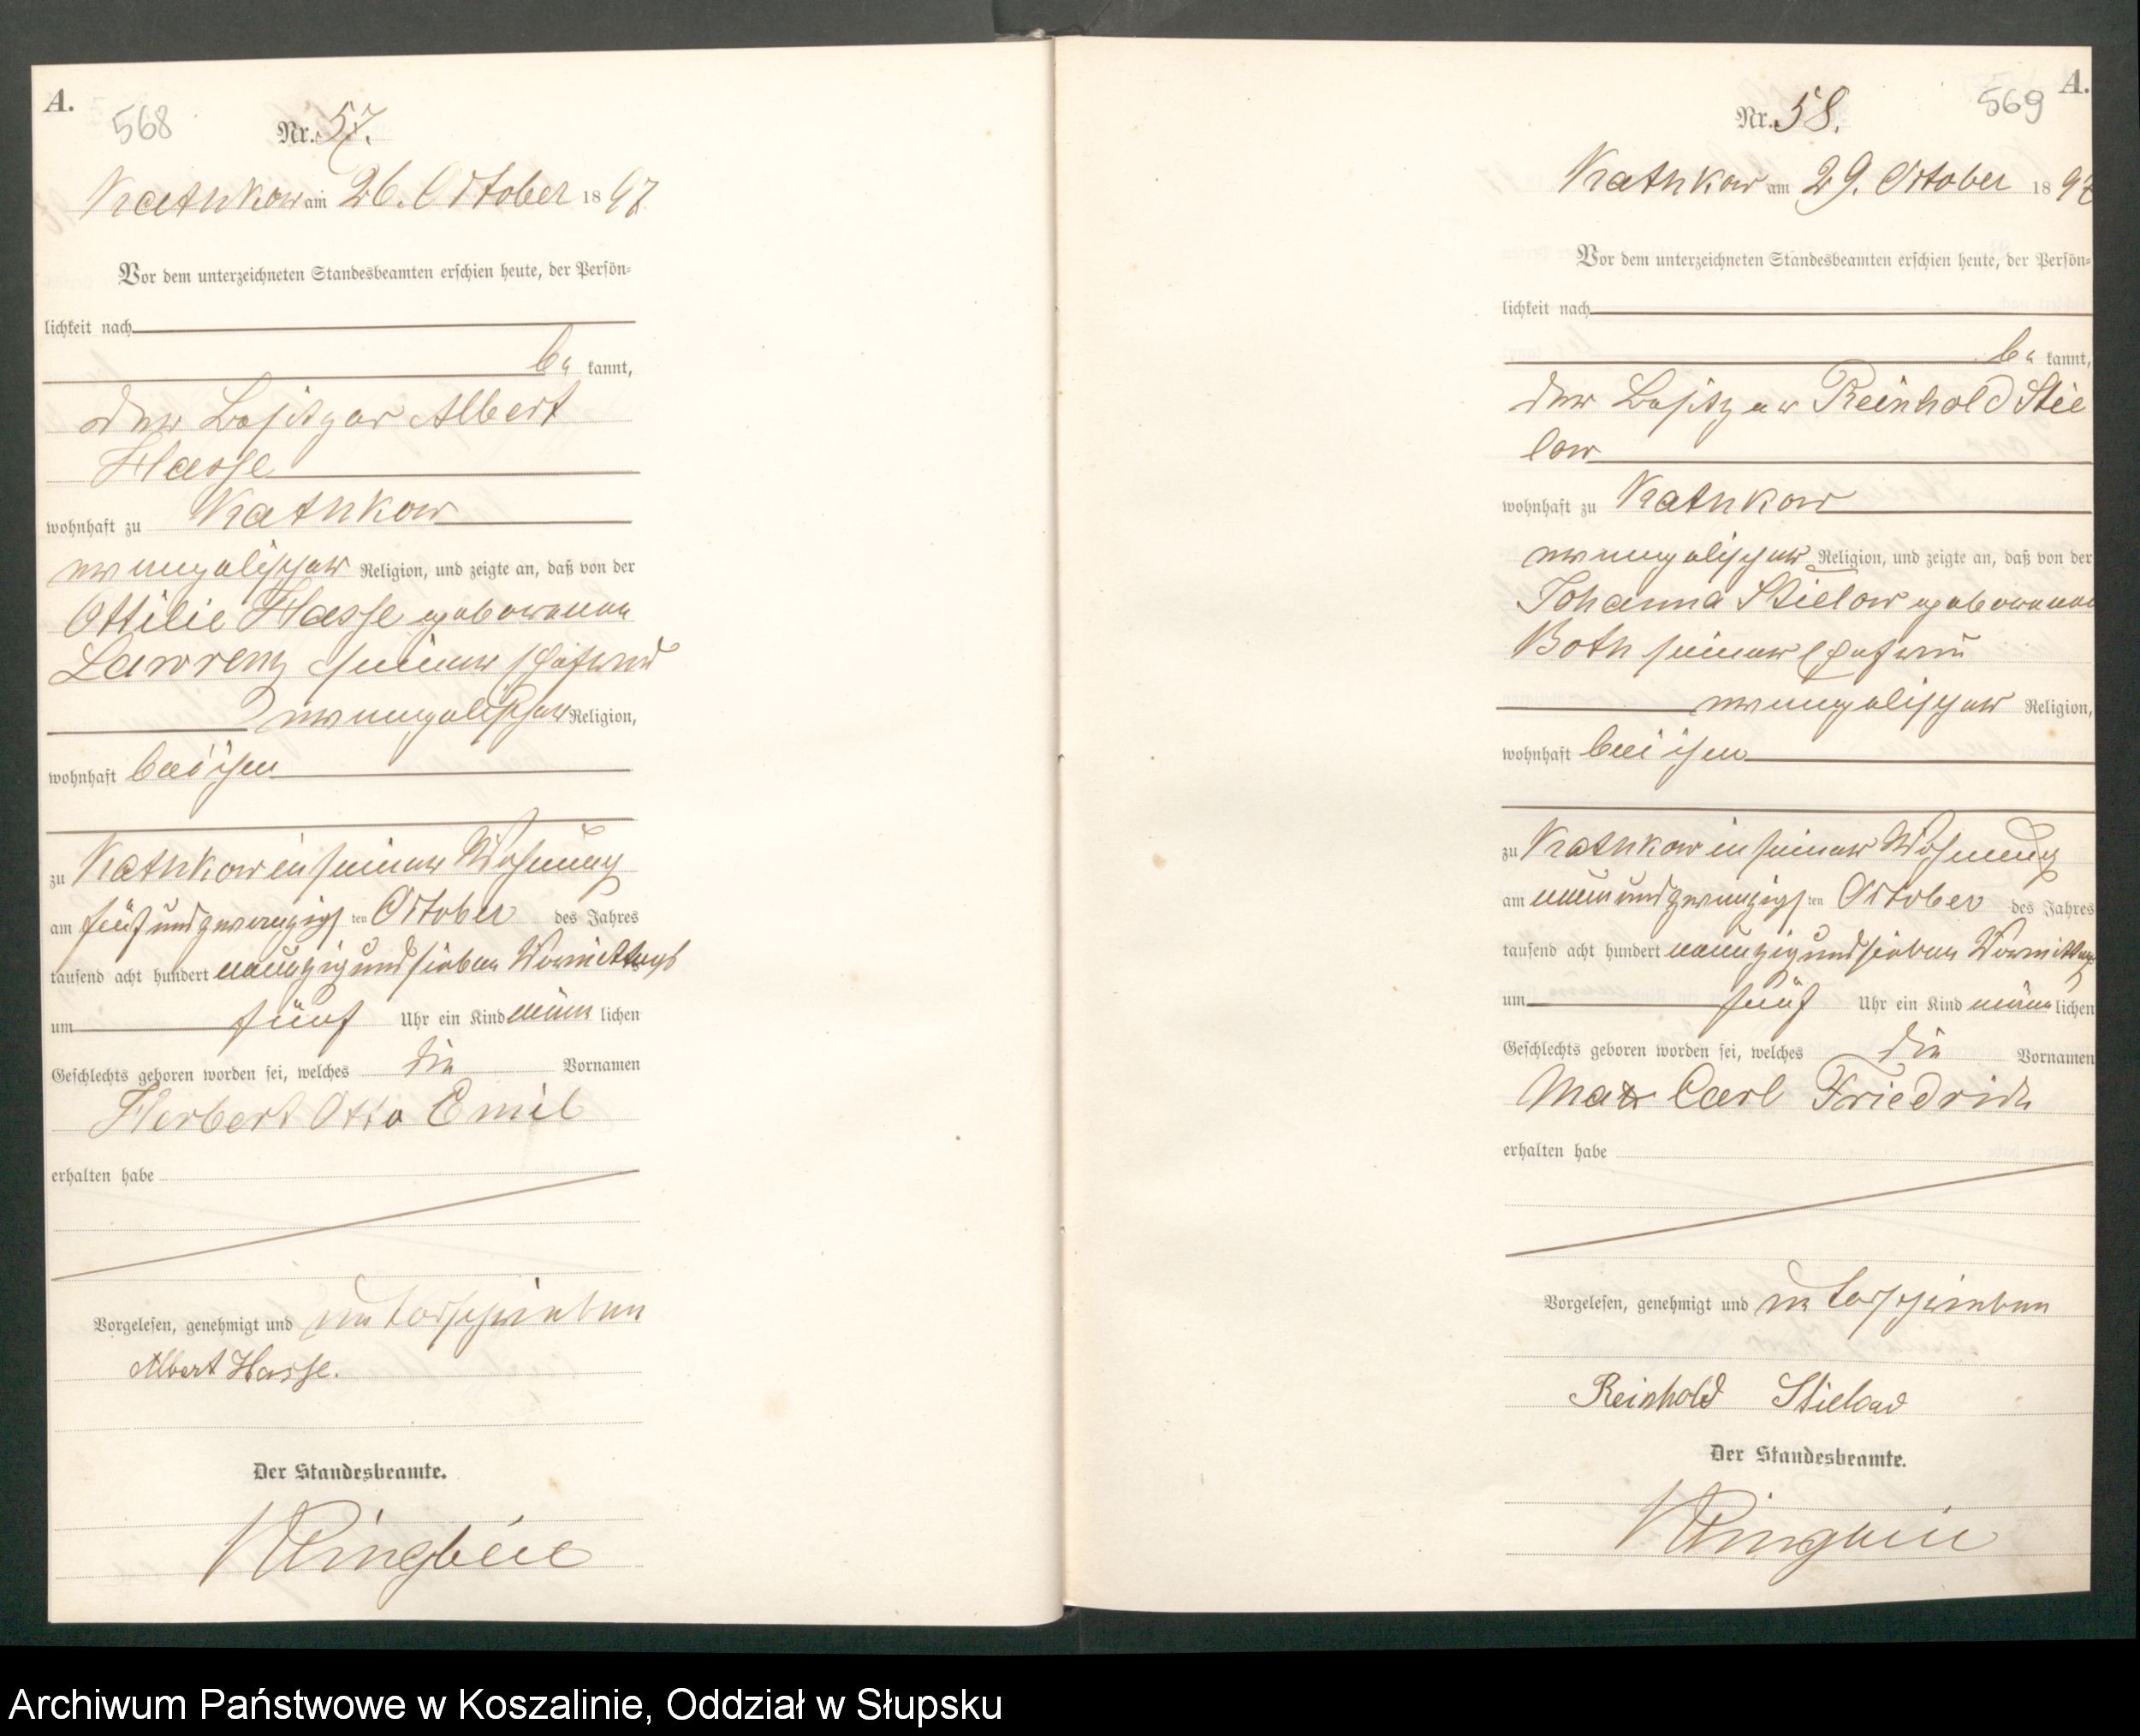 A.
568
Nr. 57.
Kathkow am 26. October 1897
Vor dem unterzeichneten Standesbeamten erschien heute, der Persön-
lichkeit nach
be kannt,
der Besitzer Albert
Hasse
wohnhaft zu Kathkow
evangelischer Religion, und zeigte an, daß von der
Ottilie Hasse geborenen
Lawrenz seiner Ehefrau
evangelischer Religion,
wohnhaft bei ihm
zu Kathkow in seiner Wohnung
am fünfundzwanzigsten October des Jahres
tausend acht hundert neunzig und sieben Vormittags
um fünf Uhr ein Kind männlichen
Geschlechts geboren worden sei, welches die Vornamen
Herbert Otto Emil
erhalten habe
Vorgelesen, genehmigt und unterschrieben
Albert Hasse.
Der Standesbeamte.
A.
569
Nr. 58.
Kathkow am 29. October 1897
Vor dem unterzeichneten Standesbeamten erschien heute, der Persön-
lichkeit nach
be kannt,
der Besitzer Reinhold Stie
low
wohnhaft zu Kathkow
evangelischer Religion, und zeigte an, daß von der
Johanna Stielow geborenen
Both seiner Ehefrau
evangelischer Religion,
wohnhaft bei ihm
zu Kathkow in seiner Wohnung
am neunundzwanzigsten October des Jahres
tausend acht hundert neunzig und sieben Vormittags
um fünf Uhr ein Kind männlichen
Geschlechts geboren worden sei, welches die Vornamen
Max Carl Friedrich
erhalten habe
Vorgelesen, genehmigt und unterschrieben
Reinhold Stielow
Der Standesbeamte.
Archiwum Państwowe w Koszalinie, Oddział w Słupsku